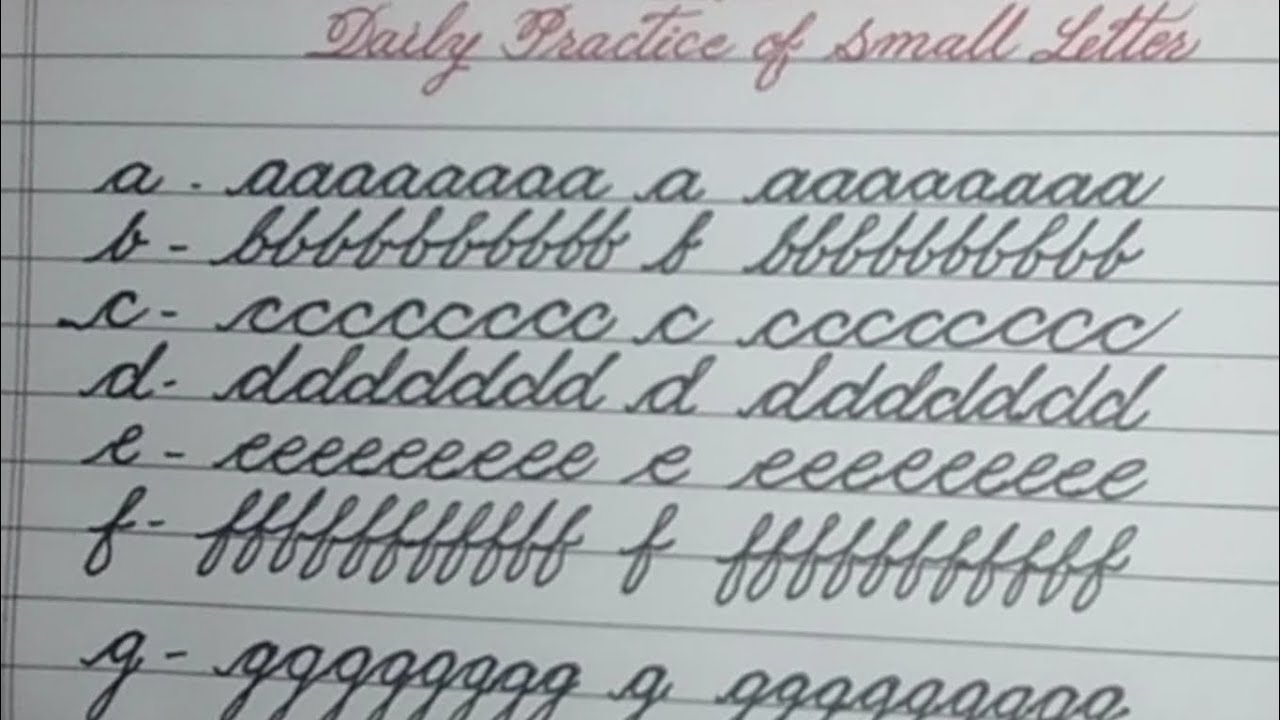 Daily Practice of small Letter
a - aaaaaaaa a aaaaaaaa
b - bbbbbbbbbb b bbbbbbbbbb
c - cccccccc c cccccccc
d - dddddddd d ddddddddd
e - eeeeeeeee e eeeeeeeee
f - fffffffffff f fffffffffff
g - gggggggg g ggggggggg